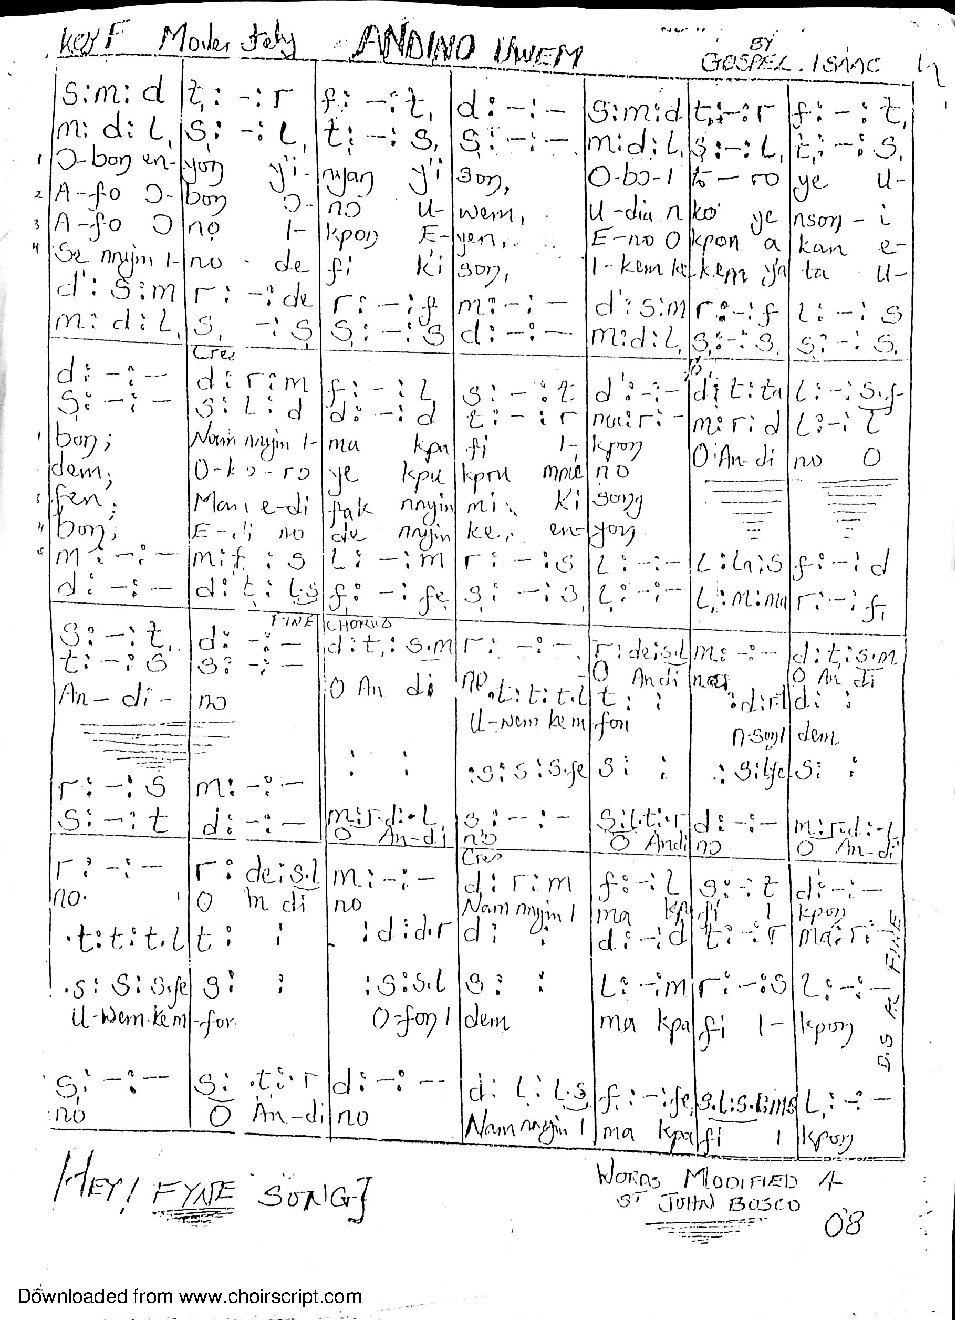 Key F Moderately ANDINO UWEM BY
GOSPEL. ISAAC
s : m : d | t, : - : r | f : - : t, | d : - : - | s : m : d | t, : - : r | f : - : t,
m : d : l, | s, : - : l, | t, : - : s, | s, : - : - | m : d : l, | s, : - : l, | t, : - : s,
1 Ɔ-bɔŋ en- yɔŋ yi- nyaŋ yi sɔŋ, O-bo-ɪ tɔ-rɔ ye u-
2 A-fo Ɔ- bɔŋ Ɔ- nɔ u- wem, U-dia n kɔ ye nsɔŋ-i
3 A-fo Ɔ nɔ I- kpɔŋ E- yen, E-no O kpɔŋ a kan e-
4 Se nnyin I- nɔ - de fi ki sɔŋ, I-kem ke kem ya ta u-
d' : s : m | r : - : de | r : - : f | m : - : - | d' : s : m | r : - : f | l : - : s
m : d : l, | s, : - : s, | s : - : s | d : - : - | m : d : l, | s, : - : s, | s, : - : s,
Cres
d : - : - | d : r : m | f : - : l | s : - : t | d' : - : - | d : t : ta | l : - : s.f
s : - : - | s : l : d | d : - : d | t : - : r | ma : r : - | m : r : d | l : - : l
1 bɔŋ; Nam nnyin I- ma kpa fi I- kpɔŋ O An-di no O
dem; O-kɔ-rɔ ye kpu kpru mpue nɔ
3 fen; Mam e-di pak nnyin mi, ki sɔŋ
4 bɔŋ; E-di nɔ de nnyin ke, en- yɔŋ
m : - : - | m : f : s | l : - : m | r : - : s | l : - : - | l : la : s | f : - : d
d : - : - | d : t : l.s | f : - : fe | s : - : s, | l : - : - | l, : m : ma | r : - : f
FINE CHORUS
s : - : t, | d : - : - | d : t, : s.m | r : - : - | r : de : s.l | m : - : - | d : t, : s.m
t : - : s | s : - : - | O An di | no | O Andi | no | O An di
An- di- no
.t : t : t.l | t : : | : d : r.l | d : :
U-wem kem fɔn n-sɔŋ I dem
: : | : s : s : s.fe | s : : | : s : l.fe | s : :
r : - : s | m : - : -
s : - : t | d : - : - | m : r.d : l | s : - : - | s : l.t : r | d : - : - | m : r.d : l
O An-di no O Andi no O An-di
Cres
r : - : - | r : de : s.l | m : - : - | d : r : m | f : - : l | s : - : t | d : - : -
no. O An di no Nam nnyin I ma kpa fi I kpɔŋ
.t : t : t.l | t : : | : d : d.r | d : : | d : - : d | t : - : r | ma : r : -
.s : s : s.fe | s : : | : s : s.l | s : : | l : - : m | r : - : s | l : - : -
U-wem kem-fɔn O-fɔn I dem ma kpa fi I- kpɔŋ
D.S AL FINE
s : - : - | s : .t : r | d : - : - | d : l : l.s | f : - : fe | s.l : s.l : ms | l, : - : -
no O An-di no Nam nnyin I ma kpa fi I kpɔŋ
HEY! FYNE SONG]
WORDS MODIFIED
ST JOHN BOSCO
08
Downloaded from www.choirscript.com